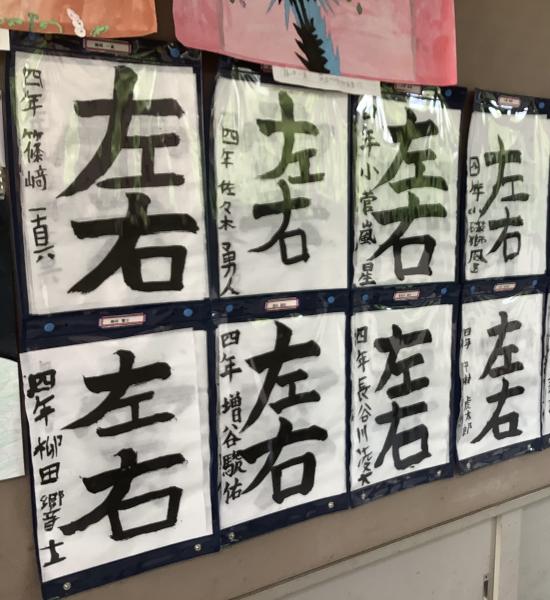 左右
四年 篠﨑 一真
左右
四年 佐々木 勇人
左右
四年 小菅 嵐星
左右
四年
左右
四年 柳田 響士
左右
四年 増谷 駿佑
左右
四年 長谷川
左右
四年 虎太郎